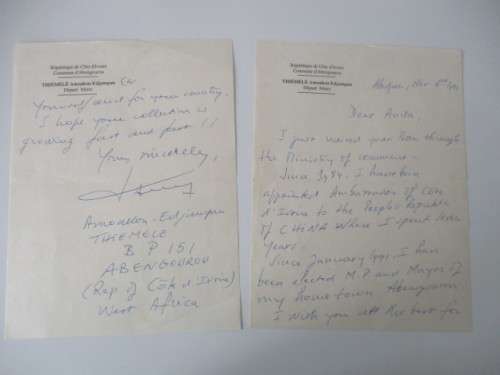 République de Côte d'Ivoire
Commune d'Abengourou
THIEMELE Amoakon Edjampan
Député Maire
Yourself and for your country.
I hope your collection is
growing fast and fast !!
Yours sincerely,
Amoakon-Edjampan
THIEMELE
B P 151
ABENGOUROU
(Rep. of Côte d'Ivoire)
West Africa
République de Côte d'Ivoire
Commune d'Abengourou
THIEMELE Amoakon Edjampan
Député Maire
Abidjan, Nov
Dear
I just received your through
the Ministry of
Since 1984. I have been
appointed Ambassador of Côte
d'Ivoire to the People's Republic
of CHINA where I spent
years.
Since January 1991, I have
been elected M.P. and Mayor of
my home town Abengourou
I wish you all the best for